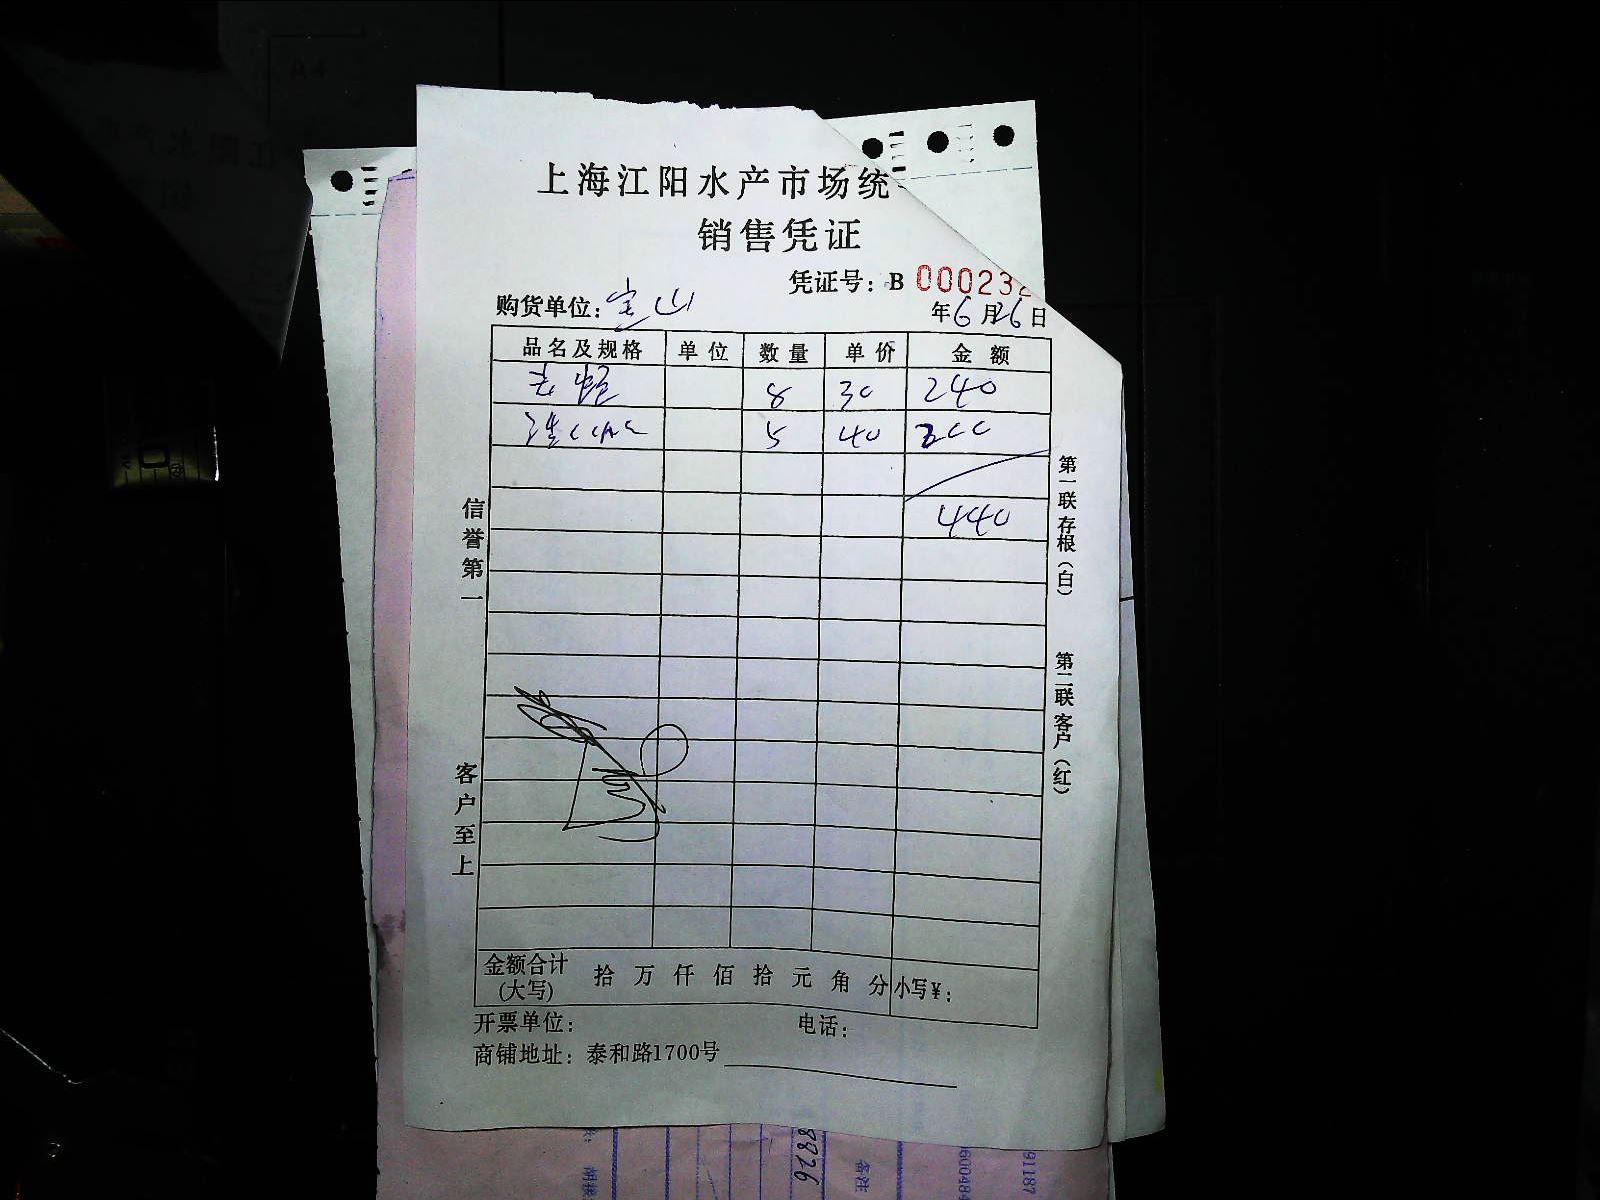 上海江阳水产市场统
销售凭证
凭证号：B 000232
购货单位：宝山
年6月26日
品名及规格 单位 数量 单价 金额
8 30 240
5 40 200
440
信誉第一
客户至上
第一联存根（白）
第二联客户（红）
金额合计(大写) 拾 万 仟 佰 拾 元 角 分 小写¥：
开票单位： 电话：
商铺地址：泰和路1700号
8826
备注
91187